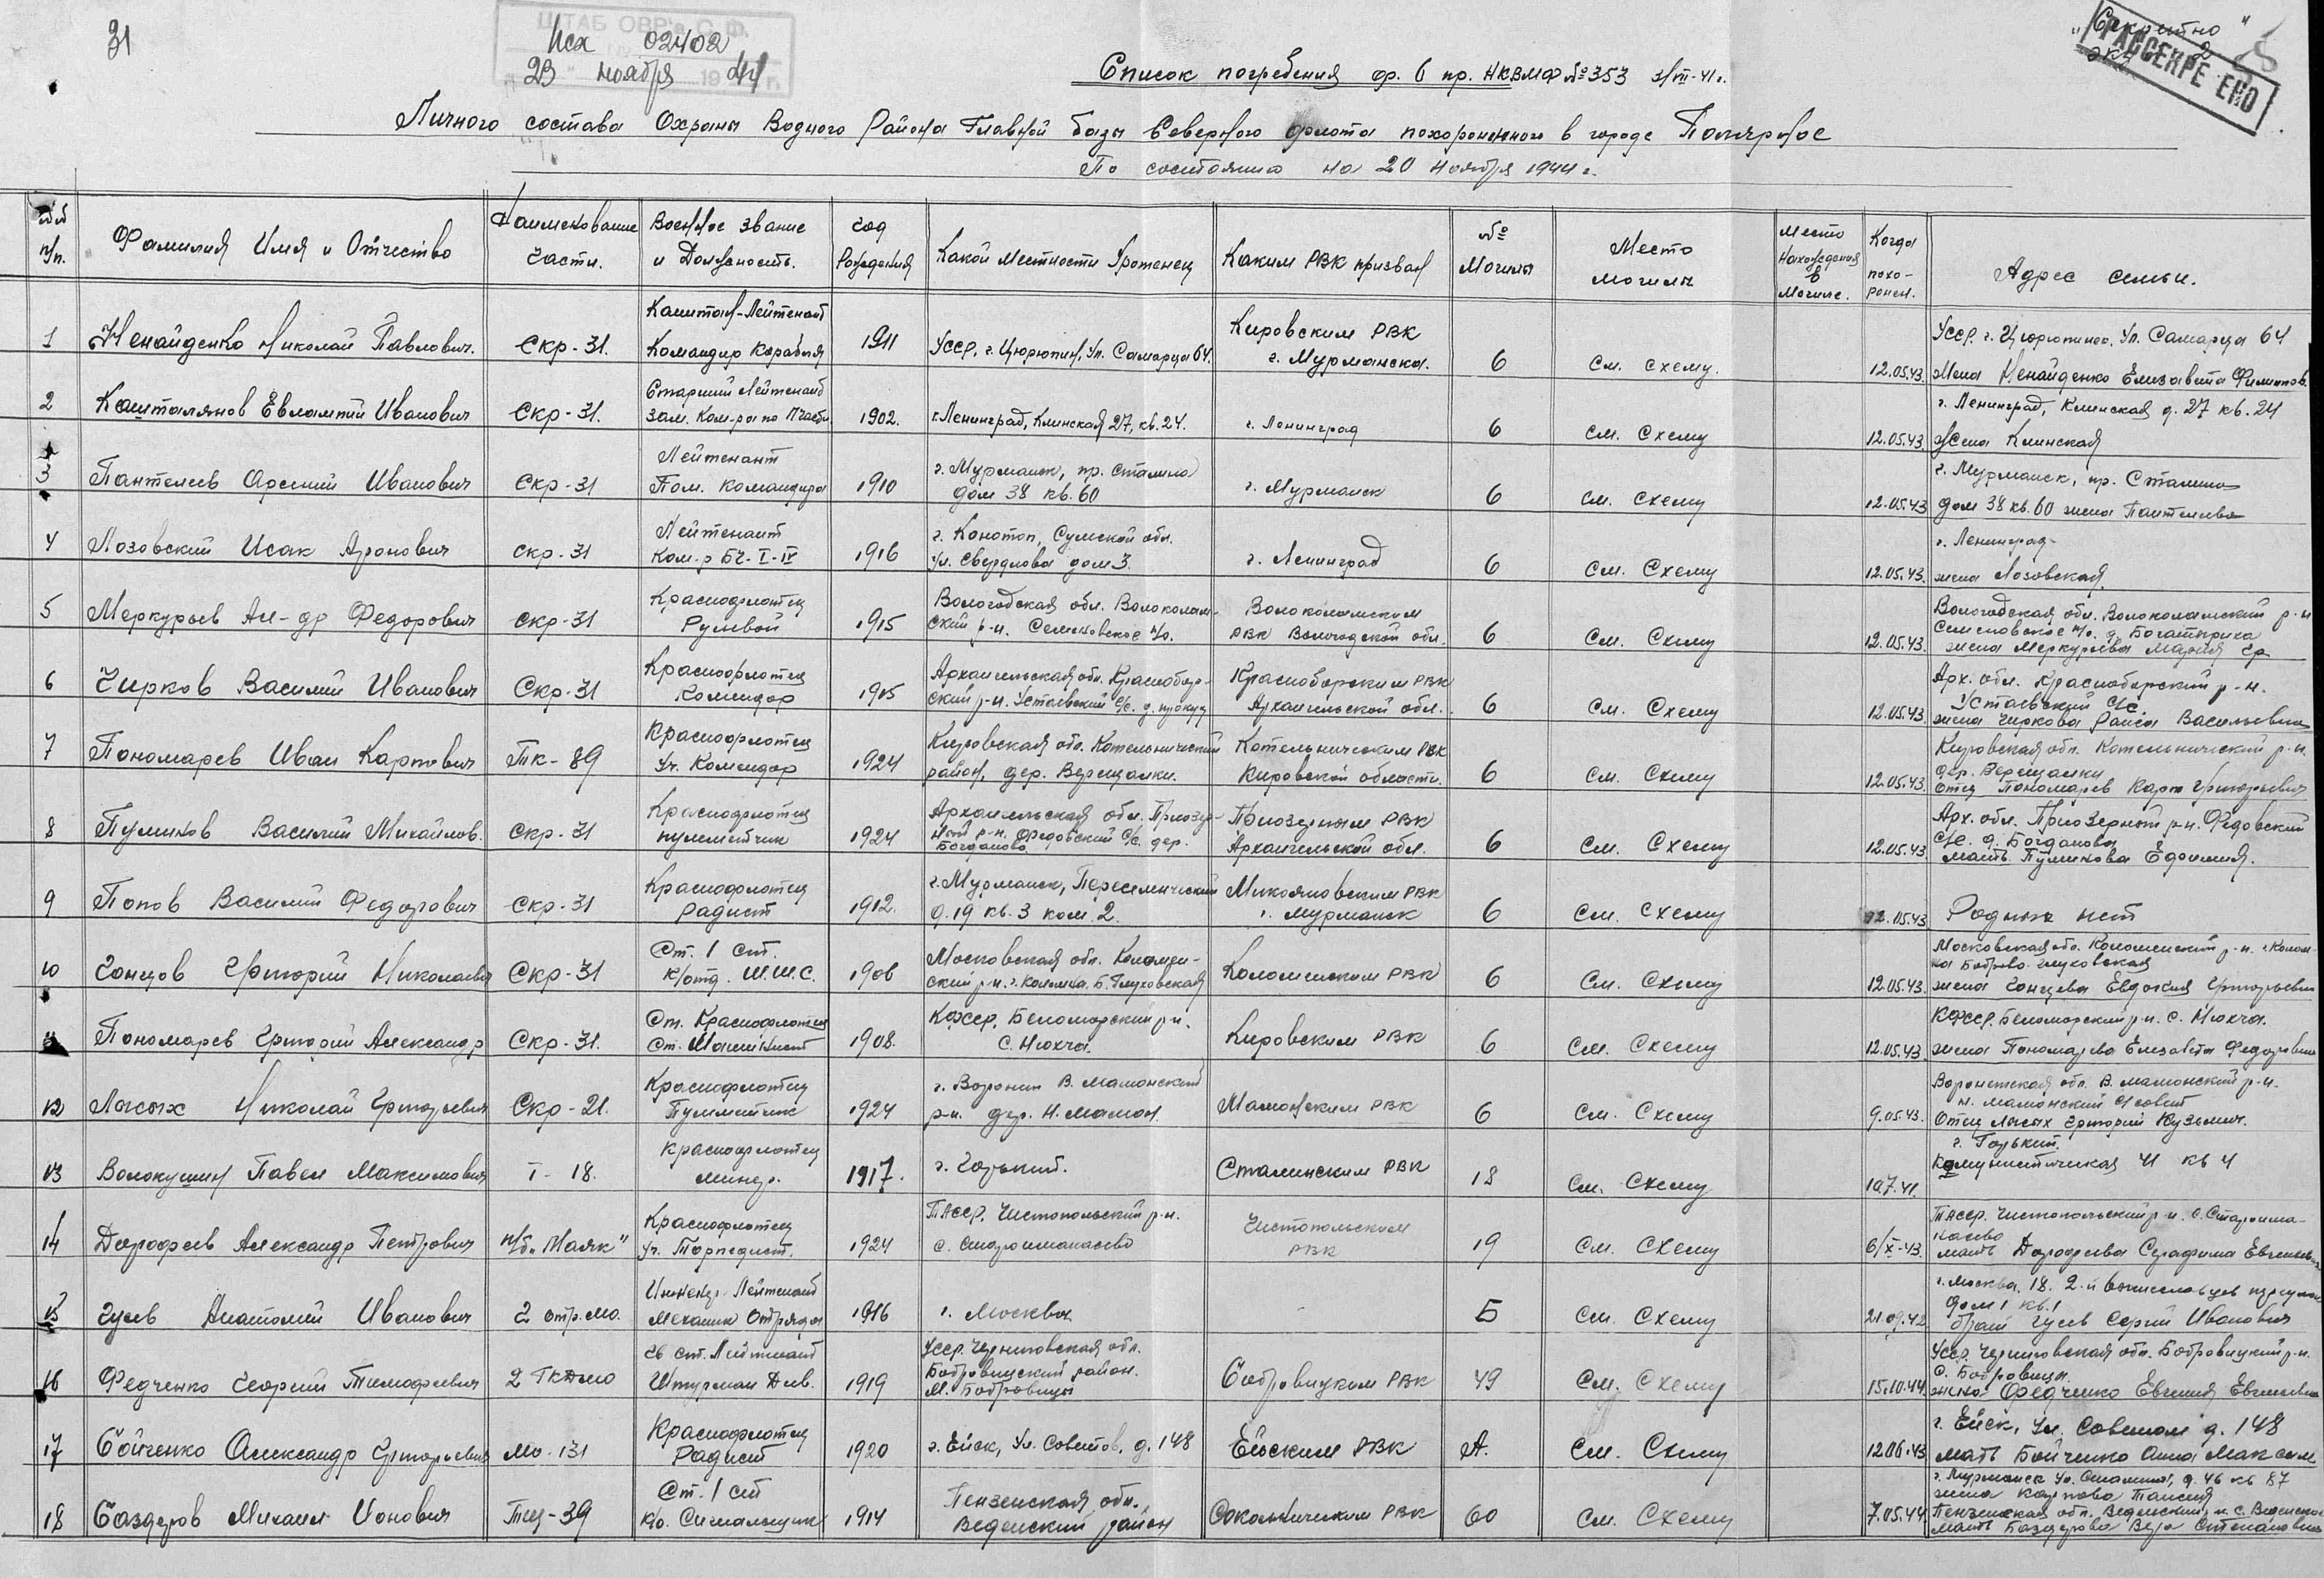 31
ШТАБ ОВР'а С.Ф.
Исх 02402
"23" ноября 1944 г.
"Секретно"
экз
РАССЕКРЕЧЕНО
Список погребения ф. 6 пр. НКВМФ №353
Личного состава Охраны Водного Района Главной базы Северного флота похороненного в городе Полярное
По состоянию на 20 ноября 1944 г.
№№ п/п.
Фамилия Имя и Отчество
Наименование части.
Военное звание и Должность.
Год Рождения
Какой местности Уроженец
Каким РВК призван
№ Могилы
Место могилы
Место Нахождения в Могиле.
Когда похоронен.
Адрес семьи.
1 Ненайденко Николай Павлович. Скр-31. Капитан-Лейтенант Командир Корабля 1911 Усср, г. Цюрюпин, Ул. Самарца 64. Кировским РВК г. Мурманска. 6 См. схему. 12.05.43 Усср. г. Цюрюпинск, Ул. Самарца 64 Жена Ненайденко Елизавета
2 Капталянов Евлампий Иванович Скр-31. Старший Лейтенант Зам. Ком-ра по П части 1902. г. Ленинград, Клинская 27, кв. 24. г. Ленинград 6 См. Схему 12.05.43 г. Ленинград, Клинская д. 27 кв. 24 жена Клинская
3 Пантелеев Арсений Иванович Скр-31 Лейтенант Пом. Командира 1910 г. Мурманск, пр. Сталина дом 38 кв. 60 г. Мурманск 6 См. Схему 12.05.43 г. Мурманск, пр. Сталина дом 38 кв. 60 жена Пантелеева
4 Лозовский Исак Аронович Скр-31 Лейтенант Ком-р БЧ-I-IV 1916 г. Конотоп, Сумской обл. Ул. Свердлова дом 3. г. Ленинград 6 См. Схему 12.05.43. г. Ленинград жена Лозовская.
5 Меркурьев Ал-др Федорович Скр-31 Краснофлотец Рулевой 1915 Вологодская обл. Волоколамский р-н. Семеновское п/о. Волоколамским РВК Вологодской обл. 6 См. Схему 12.05.43. Вологодская обл. Волоколамский р-н Семеновское п/о. д. Богатырика жена Меркурьева Мария Гр
6 Чирков Василий Иванович Скр-31 Краснофлотец Комендор 1915 Архангельская обл. Красноборский р-н. С/С. д. Красноборским РВК Архангельской обл. 6 См. Схему 12.05.43. Арх. обл. Красноборский р-н. С/С жена Чиркова Раиса Васильевна
7 Пономарев Иван Карпович ТК-89 Краснофлотец Уч. Комендор 1924 Кировская обл. Котельнический район, дер. Верещалки. Котельническим РВК Кировской области. 6 См. Схему 12.05.43. Кировская обл. Котельнический р-н. дер. Верещалки отец Пономарев Карп Григорьевич
8 Пуминов Василий Михайлов. Скр-31 Краснофлотец пулеметчик 1924 Архангельская обл. Приозерный р-н. Федовский С/С. дер. Богданово. Приозерным РВК Архангельской обл. 6 См. Схему 12.05.43 Арх. обл. Приозерный р-н. Федовский С/С. д. Богданова мать Пуминова Ефимия.
9 Попов Василий Федорович Скр-31 Краснофлотец радист 1912. г. Мурманск, Переселенческий д. 19 кв. 3 ком. 2. Микояновским РВК г. Мурманск 6 См. Схему 12.05.43 Родных нет
10 Гонцов Григорий Николаевич Скр-31 Ст. 1 ст. к/отд. Ш.Ш.С. 1906 Московская обл. Коломенский р-н. г. Коломна. Б. Глуховская Коломенским РВК 6 См. Схему 12.05.43. Московская обл. Коломенский р-н. г. Коломна Боброво-Глуховская жена Гонцева Евдокия Григорьевна
11 Пономарев Григорий Александр Скр-31. Ст. Краснофлотец Ст. Машинист 1908. КФССР, Беломорский р-н. С. Нюхча. Кировским РВК 6 См. Схему 12.05.43. КФССР, Беломорский р-н. с. Нюхча. жена Пономарева Елизавета Федоровна
12 Лысых Николай Григорьевич Скр-21. Краснофлотец Пулеметчик 1924 В. Мамонский р-н. дер. Н. Мамон. Мамонским РВК 6 См. Схему 9.05.43. Воронежская обл. В. Мамонский р-н. Н. Мамонский С/совет Отец Лысых Григорий Кузьмич.
13 Волокушин Павел Максимович Т-18. краснофлотец минер. 1917. г. Горький. Сталинским РВК 18 См. Схему 10.7.41. г. Горький Комунистическая 41 кв 4
14 Дорофеев Александр Петрович п/б. "Маяк" Краснофлотец Уч. Торпедист. 1924 ТАССР, Чистопольский р-н. с. Староиманасево Чистопольским РВК 19 См. Схему 6/X-43. ТАССР, Чистопольский р-н. с. мать Дорофеева Серафима
15 Гусев Анатолий Иванович 2 отр. МО. Инженер-Лейтенант Механик Отряда 1916 г. Москва - Б См. Схему 21.09.42 г. Москва, 18. 2-й дом 1 кв. 1 брат Гусев Сергей Иванович
16 Федченко Георгий Тимофеевич 2 ГКДМО Гв. ст. Лейтенант Штурман Див. 1919 Усср, Черниговская обл. Бобровицкий район. М. Бобровицы Бобровицким РВК 49 См. Схему 15.10.44. Усср, Черниговская обл. Бобровицкий р-н. С. Бобровицы. жена Федченко Евгения Евгеньевна
17 Бойченко Александр Григорьевич МО-131 Краснофлотец Радист 1920 г. Ейск, Ул. Советов, д. 148 Ейским РВК А. См. Схему 12.06.43 г. Ейск, Ул. Советов д. 148 мать Бойченко Анна Максим
18 Баздеров Михаил Ионович Тщ-39 Ст. 1 ст К/о. Сигнальщик 1914 Пензенская обл. Веденский район Сокольническим РВК 60 См. Схему 7.05.44. г. Мурманск Ул. Сталина, д. 46 кв 87 жена Карпова Таисия Пензенская обл. Веденский р-н. с. Веденское мать Баздерова Вера Степановна